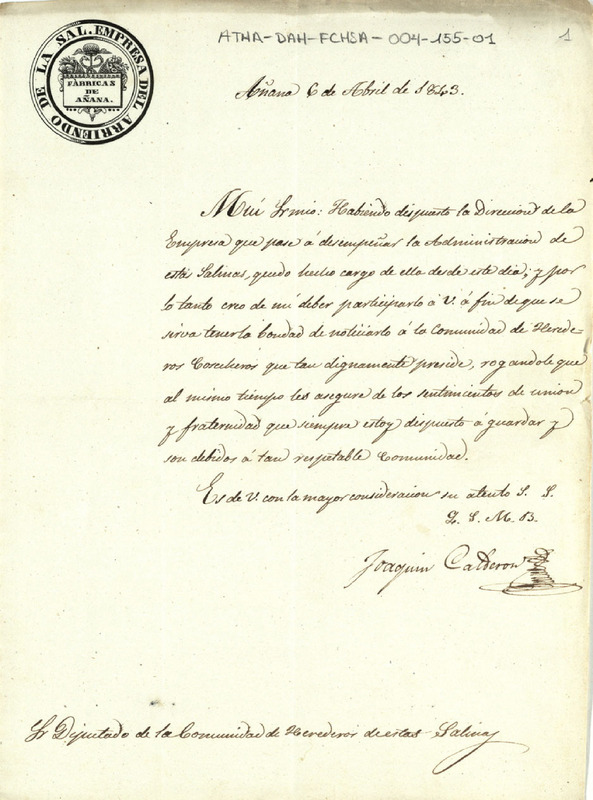 ATHA-DAH-FCHSA-004-155-01
1
EMPRESA DEL ARRIENDO DE LA SAL.
FÁBRICAS
DE
AÑANA.
Añana 6 de Abril de 1843.
Mui Sr mio: Habiendo dispuesto la Direccion de la
Empresa que pase á desempeñar la Administracion de
estas Salinas, quedo hecho cargo de ella desde este dia; y por
lo tanto creo de mi deber participarlo á V. á fin de que se
sirva tener la bondad de noticiarlo á la Comunidad de Herede-
ros Cosecheros que tan dignamente preside, rogandole que
al mismo tiempo les asegure de los sentimientos de union
y fraternidad que siempre estoy dispuesto á guardar y
son debidos á tan respetable Comunidad.
Es de V. con la mayor consideracion su atento S. S.
Q. S. M. B.
Joaquin Calderon
Sr Diputado de la Comunidad de Herederos de estas Salinas